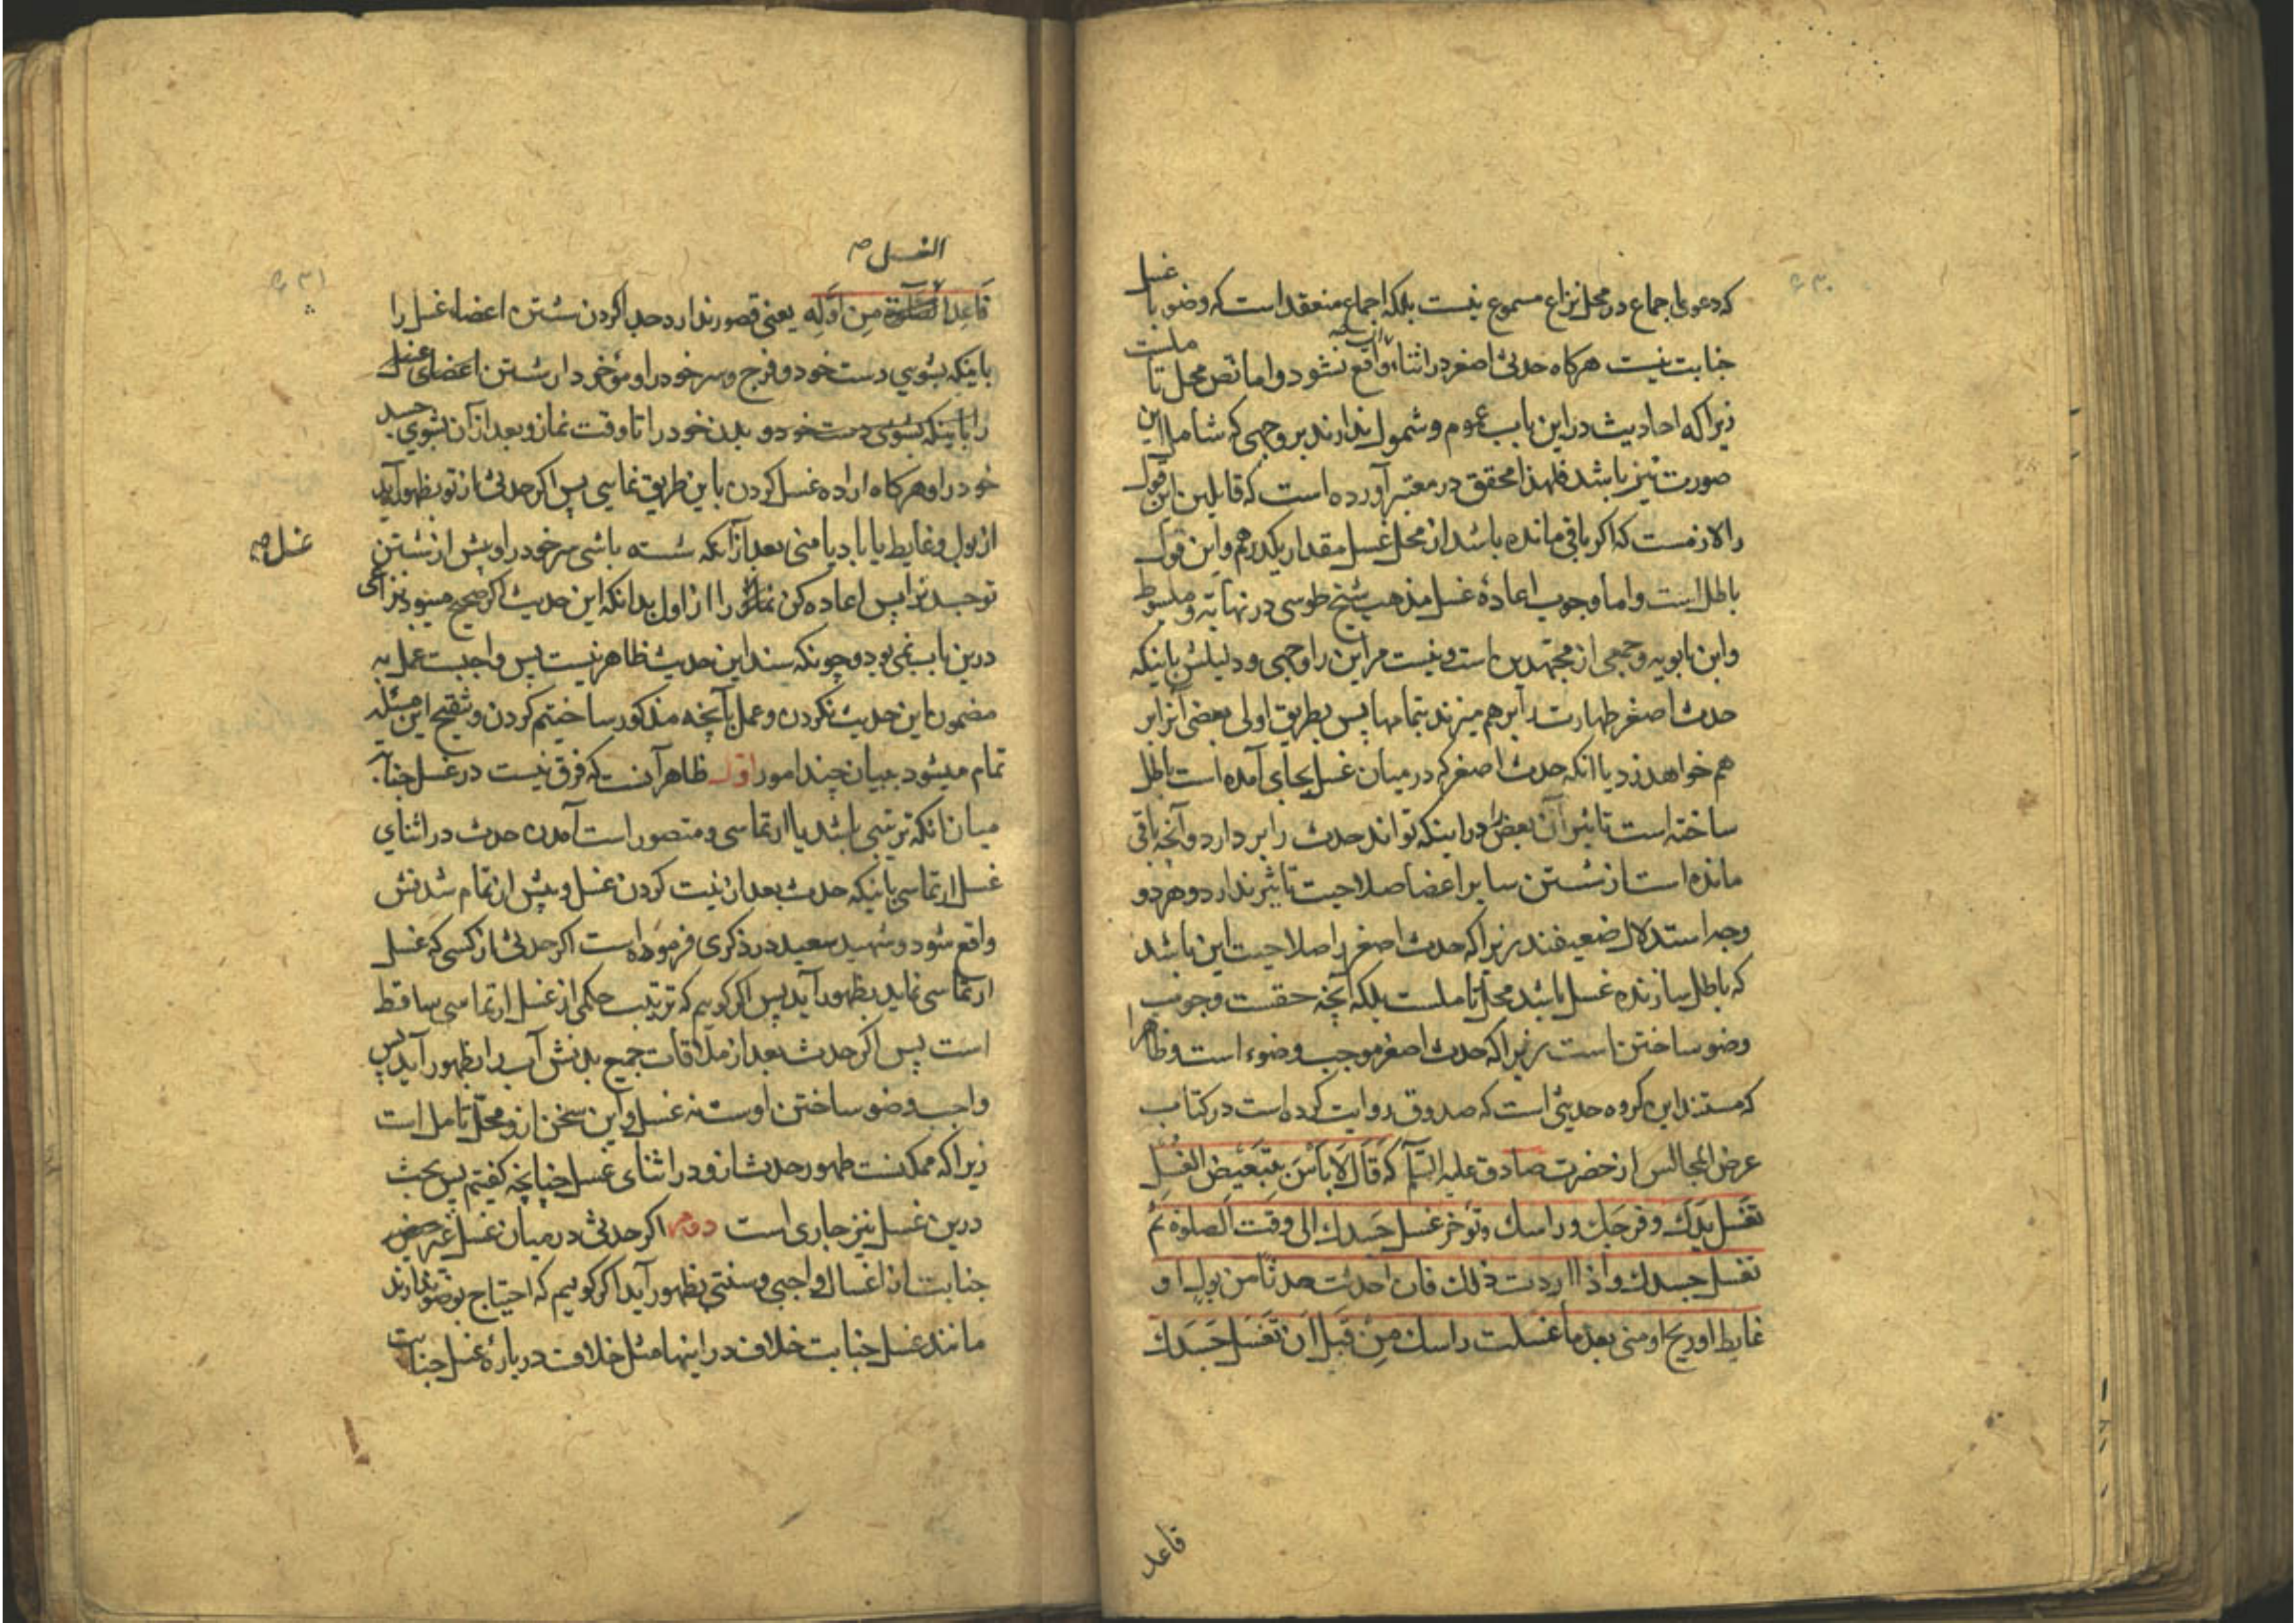 که دعوی اجماع در محل نزاع مسموع نیست بلکه اجماع منعقد است که وضو با غسل
جنابت نیست هرکاه حدثی اصغر در اثناء واقع نشود و اما نص محل تاملست
زیرا که احادیث در این باب عموم و شمول ندارند بر وجهی که شامل این
صورت نیز باشد فلهذا محقق در معتبر آورده است که قایلین این قول
را لازمست که اکر باقی مانده باشد از محل غسل مقدار یکدرهم و این قول
باطل است و اما وجوب اعادهٔ غسل مذهب شیخ طوسی در نهایة و مبسوط
و ابن بابویه و جمعی از مجتهدین است و نیست مر این را وجهی و دلیلش باینکه
حدث اصغر طهارت را برهم میزند بتمامها پس بطریق اولی بعضی آنرا بر
هم خواهد زد یا انکه حدث اصغر که در میان غسل بجای آمده است باطل
ساخته است تاثیر آن بعض را در اینکه تواند حدث را بر دارد و آنچه باقی
مانده است از شستن سایر اعضا صلاحیت تاثیر ندارد و هر دو
وجه استدلال ضعیفند زیرا که حدث اصغر را صلاحیت این باشد
که باطل سازنده غسل باشد محل تاملست بلکه آنچه حقست وجوب
وضو ساختن است زیرا که حدث اصغر موجب وضوء است و ظاهرا
که مستند این کروه حدیثی است که صدوق روایت کرده است در کتاب
عرض المجالس از حضرت صادق علیه السلم که قَالَ لَا بَأسَ بِتَبعیضِ الغُسلِ
تغسل یدک و فرجک و راسک و تؤخر غسل جسدک الی وقت الصلوة ثم
تغسل جسدک و اذا اردت ذلک فان احدثت حدثا من بول او
غایط او ریح او منی بعد ما غسلت راسک من قبل ان تغسل جسدک
قاعد
الغسل صه
فَاَعِدِ الصلوة مِن اَوَّلِه یعنی قصور ندارد جدا کردن شستن اعضاء غسل را
باینکه بشویی دست خود و فرج و سر خود را و مؤخر دار شستن اعضای غسل
را باینکه بشوی دست خود و بدن خود را تا وقت نماز و بعد از آن بشویی جسد
خود را و هرکاه اراده غسل کردن باین طریق نمایی پس اکر حدثی از تو بظهور آید
از بول و غایط یا باد یا منی بعد از آنکه شسته باشی سر خود را و پیش از شستن
غسل صه
تو جسد ترا پس اعاده کن نماز را از اول بدانکه این حدیث اکر صحیح میبود نزاعی
درین باب نمی بود و چونکه سند این حدیث ظاهر نیست پس واجبست عمل به
مضمون این حدیث نکردن و عمل بآنچه مذکور ساختیم کردن و تنقیح این مسئله
تمام میشود ببیان چند امور اول ظاهر آنست که فرق نیست در غسل جنابة
میان انکه ترتیبی باشد یا ارتماسی و متصور است آمدن حدث در اثنای
غسل ارتماسی باینکه حدث بعد از نیت کردن غسل و پیش از تمام شدنش
واقع شود و شهید سعید در ذکری فرموده است اکر حدثی از کسی که غسل
ارتماسی نماید بظهور آید پس اکر کوییم که ترتیب حکمی از غسل ارتماسی ساقط
است پس اکر حدث بعد از ملاقات جمیع بدنش آب را بظهور آید پس
واجب وضو ساختن اوست نه غسل و این سخن از و محل تامل است
زیرا که ممکنست ظهور حدث از و در اثنای غسل چنانچه کفتیم پس بحث
درین غسل نیز جاری است دوم اکر حدثی در میان غسل غیر
جنابت از اغسال واجبی و سنتی بظهور آید اکر کوییم که احتیاج بوضو ندارند
مانند غسل جنابت خلاف در اینها مثل خلافت در بارهٔ غسل جنابت